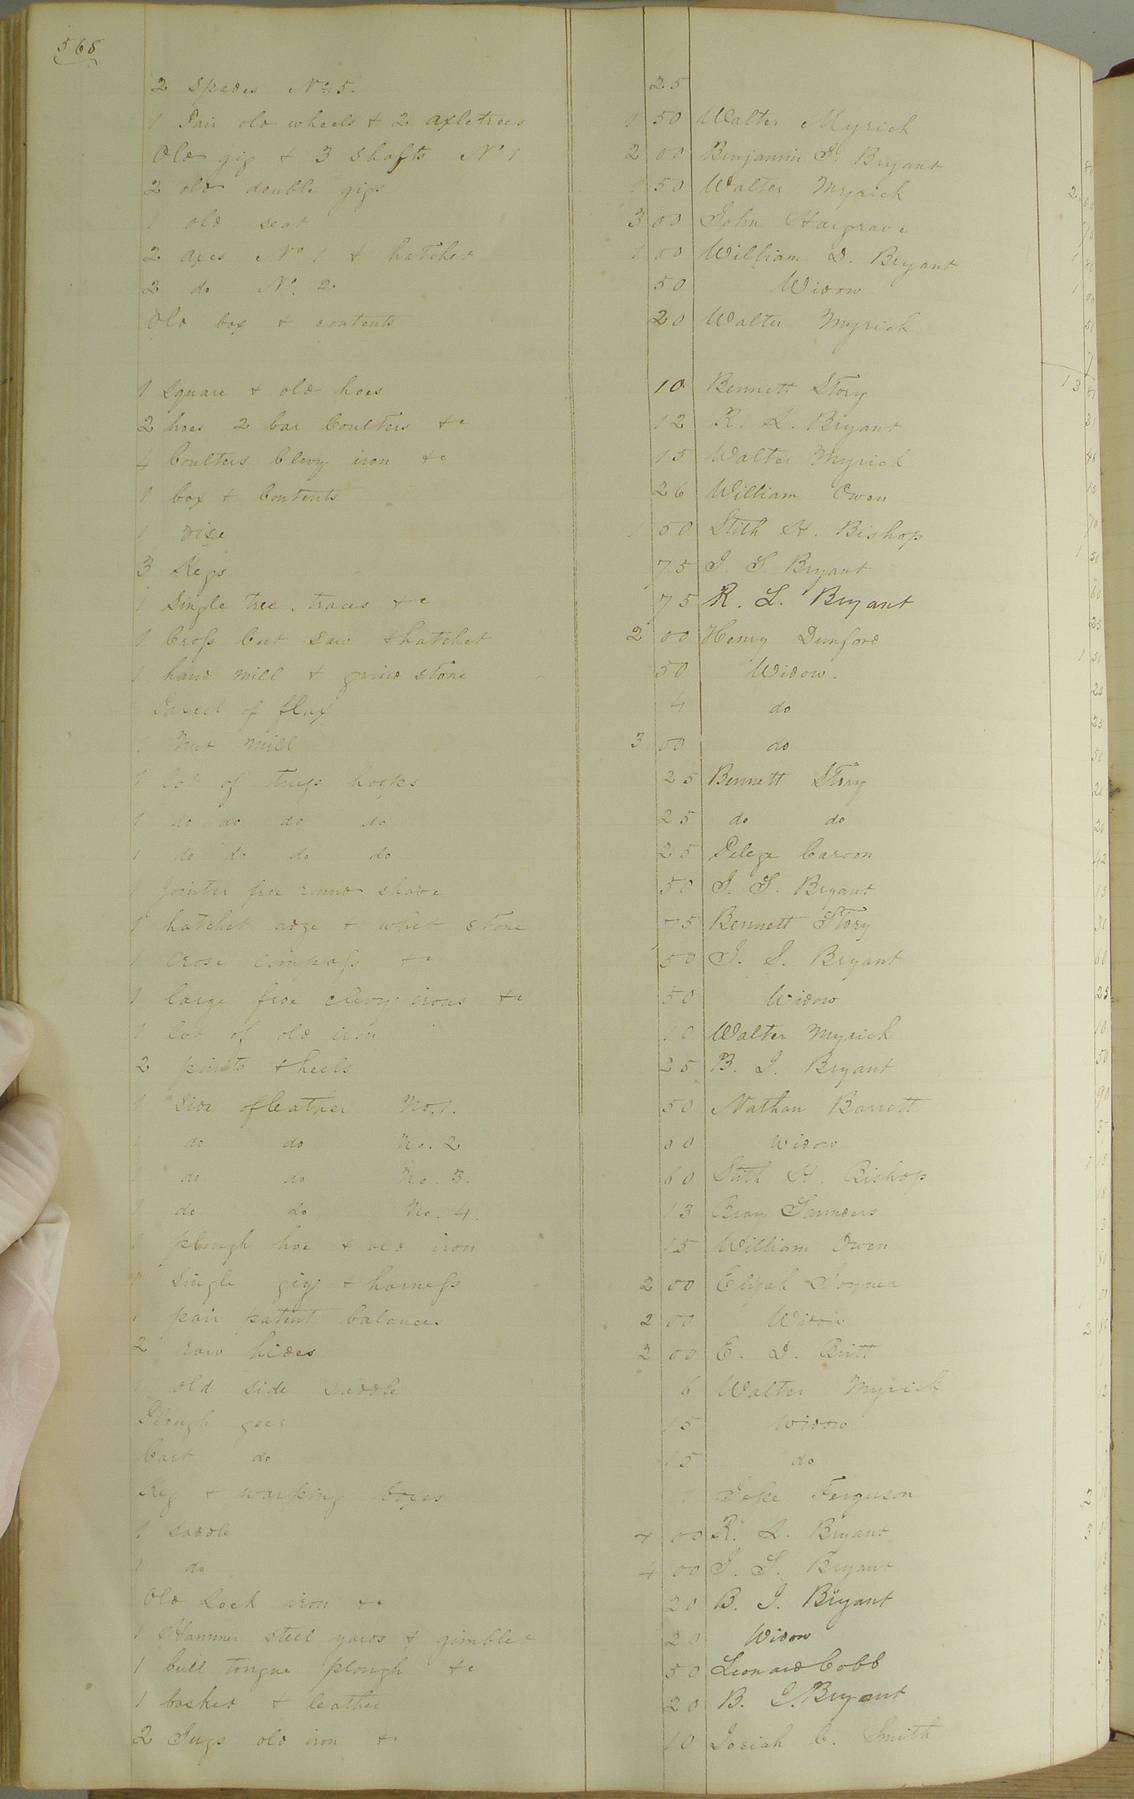 568
2 Spades No. 5. 25
1 Pair old wheels & 2 axletrees 1 50 Walter Myrick
Old gig & 3 shafts No 1 2 00 Benjamin J. Bryant
2 old double gigs 1 50 Walter Myrick
1 old seat 3 00 John Hargrave
2 axes No 1 & hatchet 1 00 William D. Bryant
2 do No. 2. 50 Widow
Old box & contents 20 Walter Myrick
1 Square & old hoes 10 Bennett Story
2 hoes 2 bar Coulters &c 12 R. L. Bryant
4 Coulters Clevy iron &c 15 Walter Myrick
1 box & Contents 26 William Owen
1 vise 50 Stith H. Bishop
3 Kegs 75 J. S Bryant
1 Single tree, traces &c 75 R. L. Bryant
1 Cross Cut saw & hatchet 2 00 Henry Dunford
1 hand mill & grind stone 50 Widow.
Parcel of flax 4 do
1 mill 3 00 do
1 lot of hoops 25 Bennett Story
1 do do do do 25 do do
1 do do do do 25 Carson
1 Jointer round shave 50 J. S. Bryant
1 hatchet adze & whet stone 75 Bennett Story
1 compass &c 50 J. S. Bryant
1 large froe clevy irons &c 50 Widow
1 lot of old iron 10 Walter Myrick
2 points & heels 25 B. J. Bryant
1 Side of leather No. 1. 50 Nathan Barrett
1 do do No. 2 Widow
1 do do No. 3. 60 Stith H. Bishop
1 do do No. 4. 13 Saunders
1 plough hoe & old iron 15 William Owen
1 Single gig & harness 2 00 Elijah Joyner
1 pair patent balances 2 00 Widow
2 raw hides 2 00 E. D. Britt
1 old side saddle 6 Walter Myrick
Plough geer 15 Widow
Cart do 15 do
Keg & boxes Ferguson
1 Saddle 4 00 R. L. Bryant
1 do 4 00 J. S. Bryant
Old Lock iron &c 20 B. J. Bryant
1 Hammer steel yards & gimblet 20 Widow
1 bull tongue plough &c 50 Leonard Cobb
1 basket & leather 20 B. J. Bryant
2 Jugs old iron &c 10 Josiah C. Smith